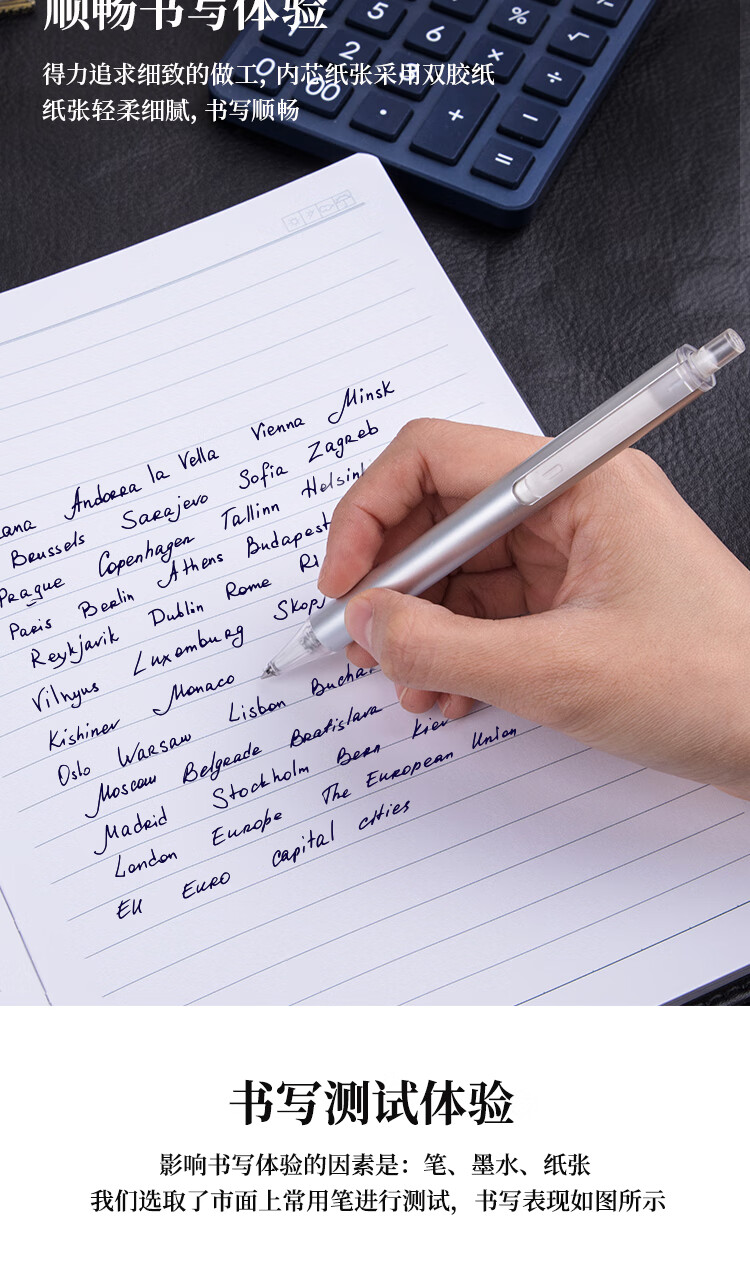 顺畅书写体验
得力追求细致的做工, 内芯纸张采用双胶纸
纸张轻柔细腻, 书写顺畅
5 %
2 6 × √
0 00 ÷
· + −
=
Andorra la Vella Vienna Minsk
Brussels Sarajevo Sofia Zagreb
Prague Copenhagen Tallinn Helsin
Paris Berlin Athens Budapest
Reykjavik Dublin Rome Ri
Vilnyus Luxemburg Skop
Kishinev Monaco
Oslo Warsaw Lisbon Buchar
Moscow Belgrade Bratislava
Madrid Stockholm Bern Kiev
London Europe The European Union
EU EURO capital cities
书写测试体验
影响书写体验的因素是：笔、墨水、纸张
我们选取了市面上常用笔进行测试，书写表现如图所示